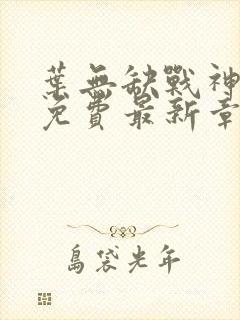 葉無缺戰神
免費最新章
島袋光年